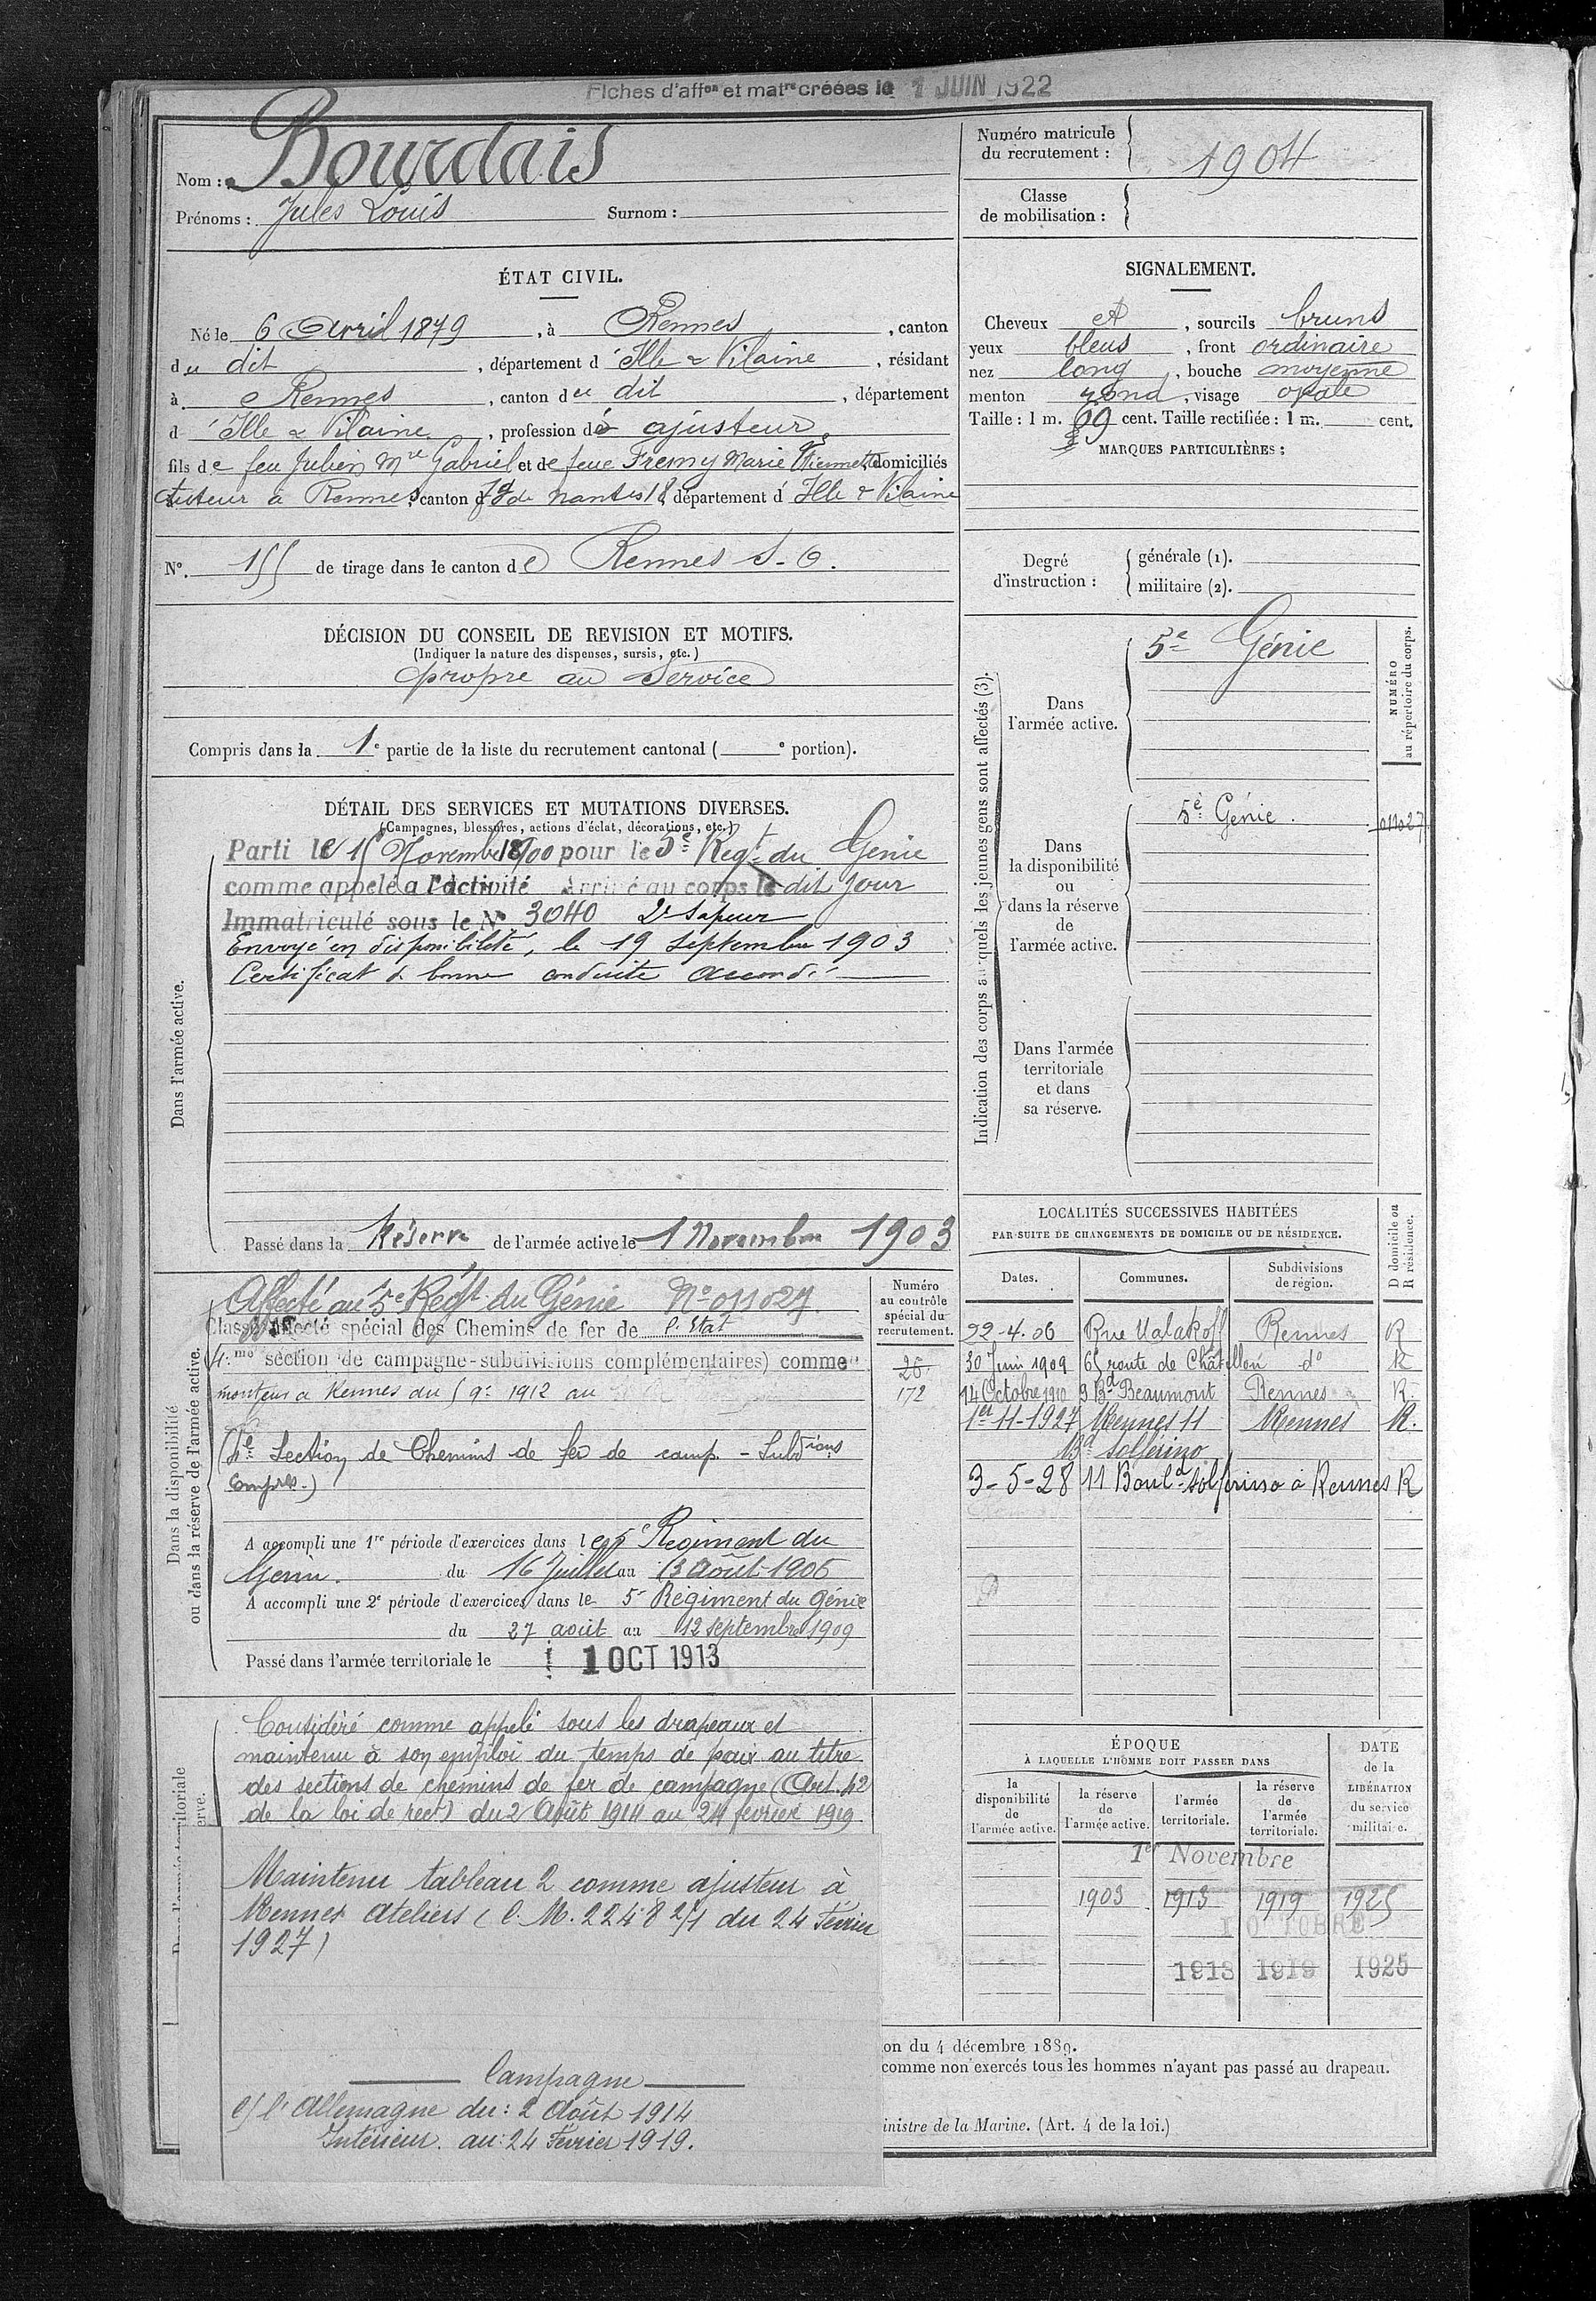 Fiches d'affon et matre créées le 1 JUIN 1922
Nom : Bourdais
Prénoms : Jules Louis Surnom :
Numéro matricule du recrutement : 1904
Classe de mobilisation :
ÉTAT CIVIL.
Né le 6 Avril 1879, à Rennes, canton
du dit, département d'Ille & Vilaine, résidant
à Rennes, canton du dit, département
d'Ille & Vilaine, profession d ajusteur
fils de feu Julien Mie Gabriel et de feue Fremy Marie Etiennette domiciliés
tuteur à Rennes, canton fg de Nantes 18, département d'Ille & Vilaine
N° 155 de tirage dans le canton de Rennes S-O.
SIGNALEMENT.
Cheveux et, sourcils bruns
yeux bleus, front ordinaire
nez long, bouche moyenne
menton rond, visage ovale
Taille : 1 m. 69 cent. Taille rectifiée : 1 m. cent.
MARQUES PARTICULIÈRES :
Degré d'instruction : générale (1).
militaire (2).
DÉCISION DU CONSEIL DE REVISION ET MOTIFS.
(Indiquer la nature des dispenses, sursis, etc.)
propre au Service
Compris dans la 1e partie de la liste du recrutement cantonal ( e portion).
DÉTAIL DES SERVICES ET MUTATIONS DIVERSES.
(Campagnes, blessures, actions d'éclat, décorations, etc.)
Dans l'armée active.
Parti le 15 Novembre 1900 pour le 5e Regt du Génie
comme appelé à l'activité Arrivé au corps le dit jour
Immatriculé sous le N° 3040 2e Sapeur
Envoyé en disponibilité, le 19 septembre 1903
Certificat de bonne conduite accordé
Passé dans la Réserve de l'armée active le 1 Novembre 1903
Indication des corps auxquels les jeunes gens sont affectés (3).
NUMÉRO au répertoire du corps.
Dans l'armée active.
5e Génie
Dans la disponibilité ou dans la réserve de l'armée active.
5e Génie.
011027
Dans l'armée territoriale et dans sa réserve.
Dans la disponibilité ou dans la réserve de l'armée active.
Numéro au contrôle spécial du recrutement.
Affecté au 5e Régt du Génie No 011027
Classé affecté spécial des Chemins de fer de l'Etat
(4.me section de campagne-subdivisions complémentaires) comme
26.
monteur à Rennes du 5 9e 1912 au
172
(4e Section de Chemins de fer de camp. - Subdions
Compres.)
A accompli une 1re période d'exercices dans le 5e Régiment du
Génie. du 16 Juillet au 13 Août 1906
A accompli une 2e période d'exercices dans le 5e Régiment du Génie
du 27 août au 12 septembre 1909
Passé dans l'armée territoriale le 1 OCT 1913
LOCALITÉS SUCCESSIVES HABITÉES
PAR SUITE DE CHANGEMENTS DE DOMICILE OU DE RÉSIDENCE.
D domicile ou R résidence.
Dates. Communes. Subdivisions de région.
22-4-06 Rue Malakoff Rennes R
30 Juin 1909 65 route de Châtillon do R
14 Octobre 1910 9 Bd Beaumont Rennes R.
1er-11-1927 Rennes 11 Rennes R.
Bd Solférino
3-5-28 11 Bould Solférino à Rennes R
Considéré comme appelé sous les drapeaux et
maintenu à son emploi du temps de paix au titre
des sections de chemins de fer de campagne (Art. 42
de la loi de rect) du 2 Août 1914 au 24 février 1919
Maintenu tableau 2 comme ajusteur à
Rennes Ateliers (C. M. 2248 2/1 du 24 Février
1927)
Campagne
c/ l'Allemagne du : 2 Août 1914
Intérieur. au : 24 Février 1919.
ÉPOQUE
À LAQUELLE L'HOMME DOIT PASSER DANS
DATE de la LIBÉRATION du service militaire.
la disponibilité de l'armée active.
la réserve de l'armée active.
l'armée territoriale.
la réserve de l'armée territoriale.
1er Novembre
1903 1913 1919 1925
OCTOBRE
1913 1919 1925
on du 4 décembre 1889.
comme non exercés tous les hommes n'ayant pas passé au drapeau.
inistre de la Marine. (Art. 4 de la loi.)